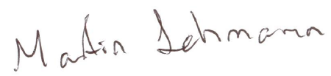 Martin Lehmann